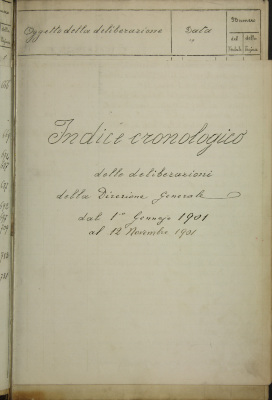 Oggetto della deliberazione
Data
Numero
del
della
Indice cronologico
delle deliberazioni
della Direzione Generale
dal 1º Gennajo 1901
al 12 Novembre 1901